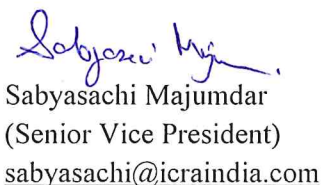 Sabyasachi Majumdar
(Senior Vice President)
sabyasachi@icraindia.com